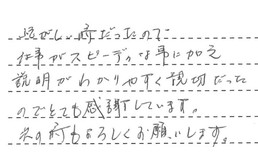 忙しい時だったので
仕事がスピーディな事に加え
説明がわかりやすく親切だった
のでとても感謝しています。
次の時もよろしくお願いします。